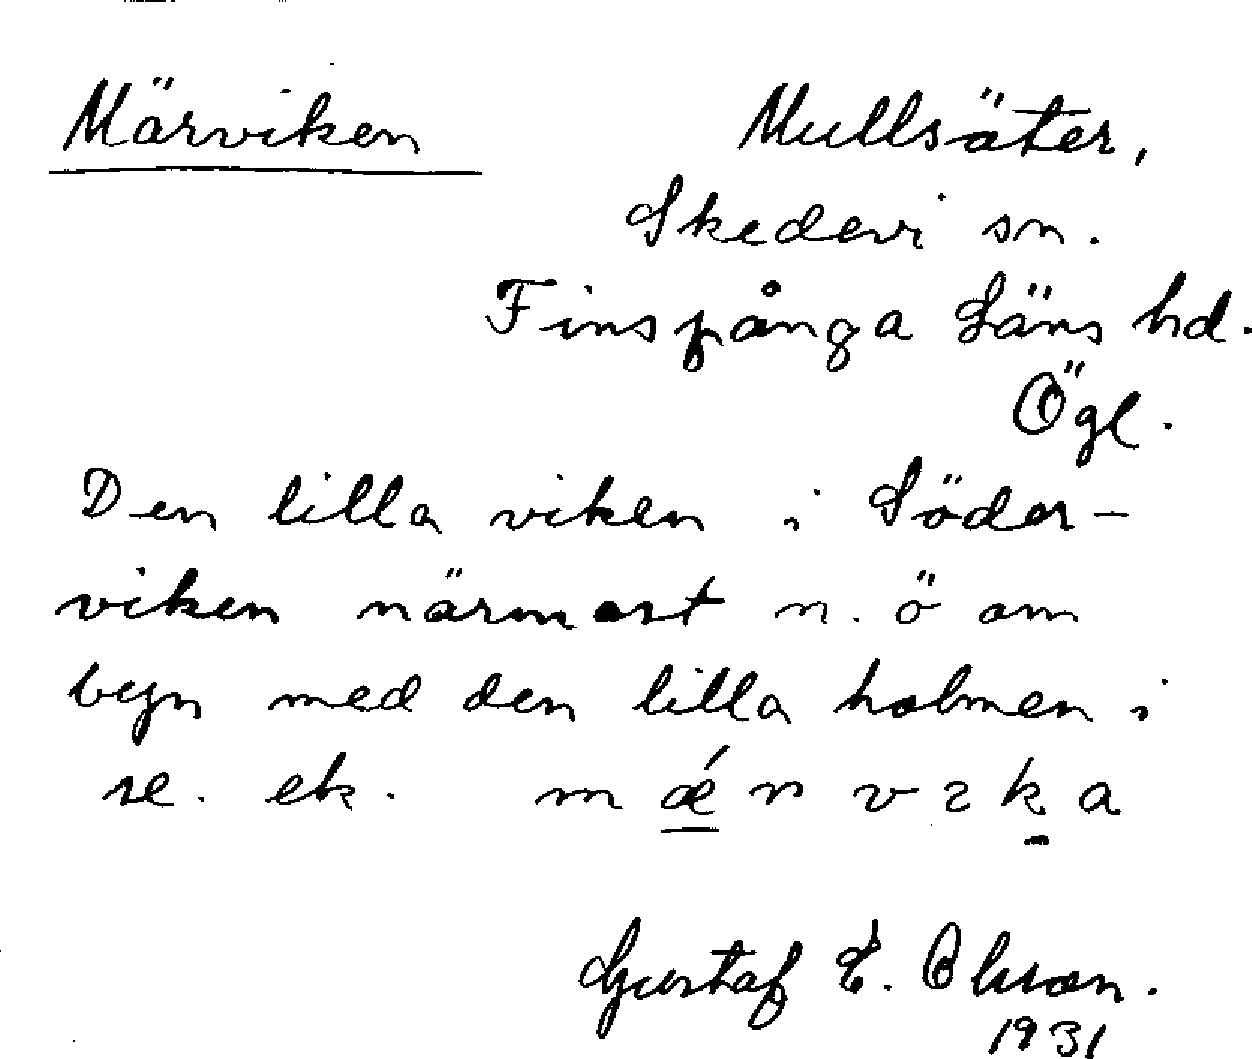 Märviken
Mullsäter,
Skedevi sn.
Finspånga Läns hd.
Ögl.
Den lilla viken i Söder-
viken närmast n. ö om
byn med den lilla holmen i
se. ek.
Gustaf E. Olsson.
1931